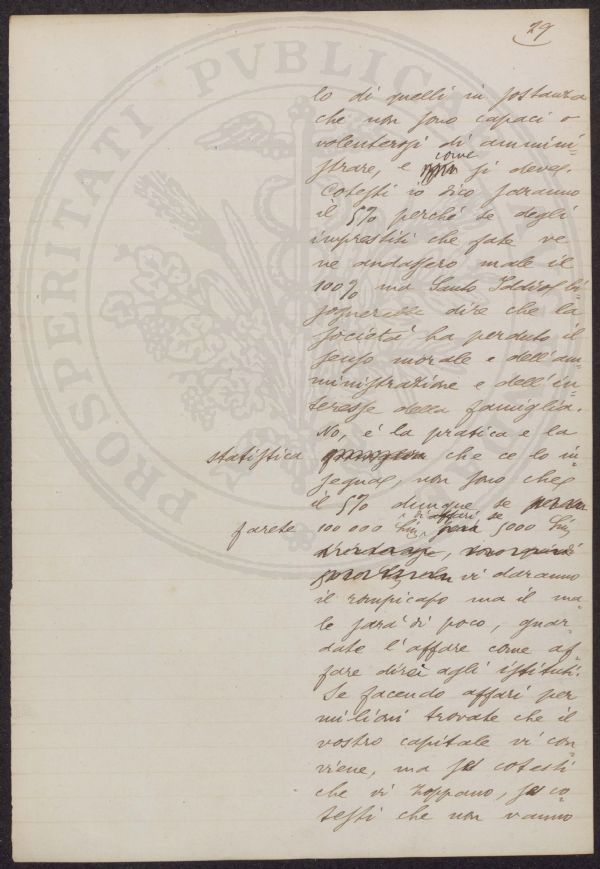 29
lo di quelli in sostanza
che non sono capaci o
volenterosi di ammini-
strare, e come si deve.
Cotesti io dico saranno
il 5% perché se degli
imprestiti che fate ve
ne andassero male il
100% ma Santo Iddio! bi-
sognerebbe dire che la
società ha perduto il
senso morale e dell'am-
ministrazione e dell'in-
teresse della famiglia.
No, é la pratica e la
statistica che ce lo in-
segna, non sono che
il 5% dunque se
farete 100000 di affari se 5000
vi daranno
il rompicapo ma il ma-
le sará di poco, guar-
date l'affare come af-
fare direi agli istituti.
Se facendo affari per
milioni trovate che il
vostro capitale vi con-
viene, ma cotesti
che vi zoppano, co-
testi che non vanno
PROSPERITATI PVBLICAE